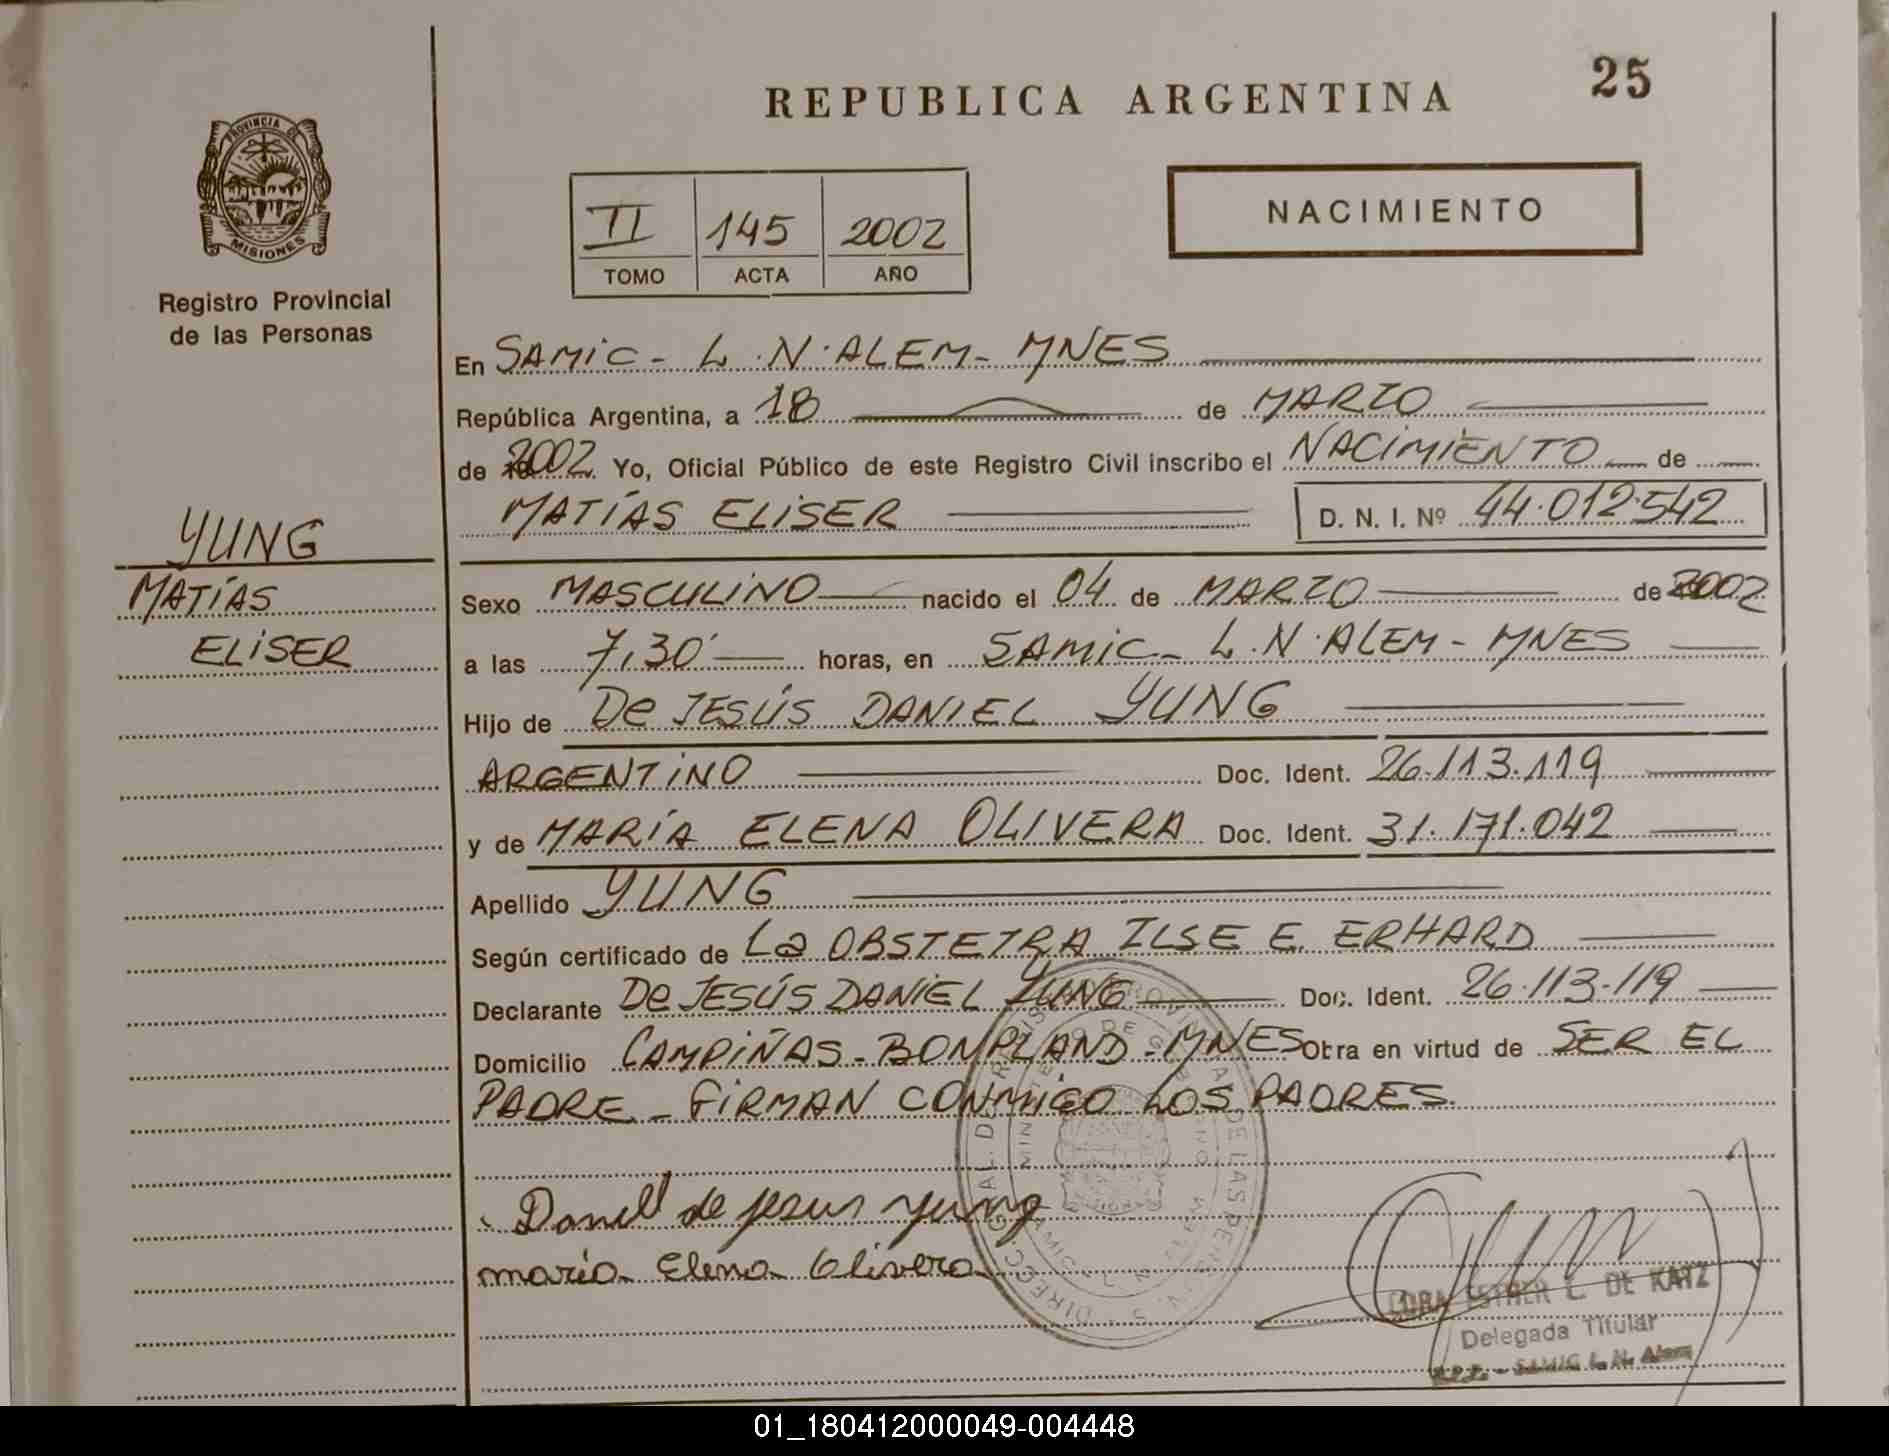 REPUBLICA ARGENTINA
25
PROVINCIA DE
MISIONES
Registro Provincial
de las Personas
II 145 2002
TOMO ACTA AÑO
NACIMIENTO
En SAMIC - L.N. ALEM - MNES
República Argentina, a 18 de MARZO
de 2002 Yo, Oficial Público de este Registro Civil inscribo el NACIMIENTO de
MATÍAS ELISER D. N. I. Nº 44.012.542
YUNG
MATÍAS
ELISER
Sexo MASCULINO nacido el 04 de MARZO de 2002
a las 7,30 horas, en SAMIC - L.N. ALEM - MNES
Hijo de De JESÚS DANIEL YUNG
ARGENTINO Doc. Ident. 26.113.119
y de MARÍA ELENA OLIVERA Doc. Ident. 31.171.042
Apellido YUNG
Según certificado de La OBSTETRA ILSE E. ERHARD
Declarante De JESÚS DANIEL YUNG Doc. Ident. 26.113.119
Domicilio CAMPIÑAS - BONPLAND - MNES Obra en virtud de SER EL
PADRE - FIRMAN CONMIGO LOS PADRES.
Daniel de jesus yung
maria Elena Olivera
CORA ESTHER L. DE KATZ
Delegada Titular
SAMIC L. N. Alem
01_180412000049-004448